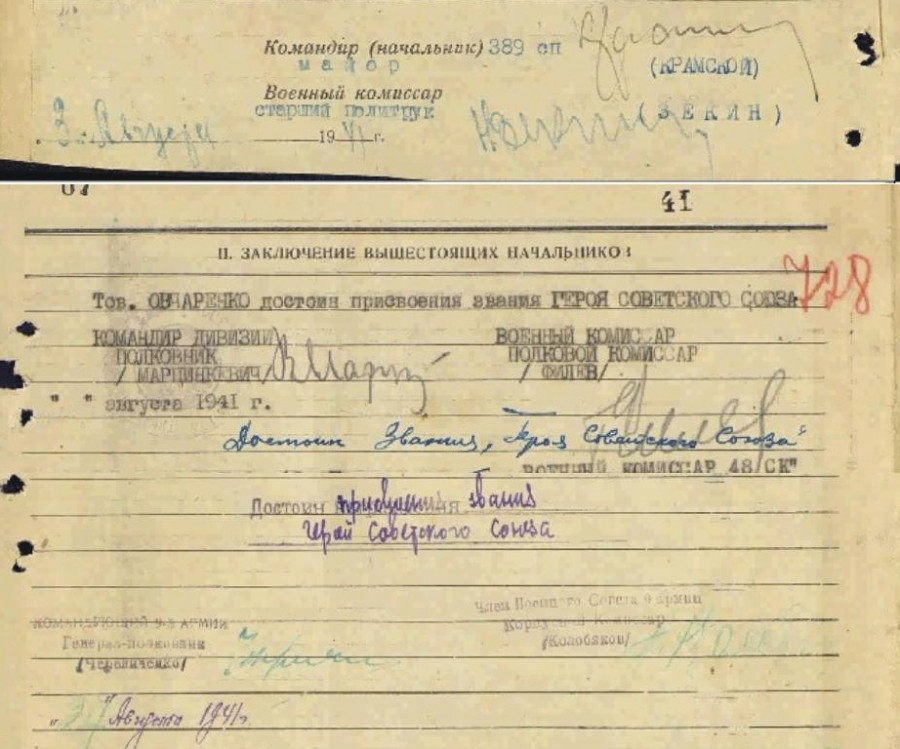 Командир (начальник) 389 сп
майор
(КРАМСКОЙ)
Военный комиссар
старший политрук
(ЗЕКИН)
3 Августа 1941 г.
41
II. ЗАКЛЮЧЕНИЕ ВЫШЕСТОЯЩИХ НАЧАЛЬНИКОВ
728
Тов. ОВЧАРЕНКО достоин присвоения звания ГЕРОЯ СОВЕТСКОГО СОЮЗА
КОМАНДИР ДИВИЗИИ ВОЕННЫЙ КОМИССАР
ПОЛКОВНИК ПОЛКОВОЙ КОМИССАР
/ МАРЦИНКЕВИЧ/ / ФИЛЕВ/
" " августа 1941 г.
Достоин Звания "Героя Советского Союза"
ВОЕННЫЙ КОМИССАР 48/СК"
Достоин присвоения звания
Герой Советского Союза
КОМАНДУЮЩИЙ 9-й АРМИИ Член Военного Совета 9 армии
Генерал-Полковник Корпусной Комиссар
/Черевиченко/ /Колобяков/
Августа 1941г.